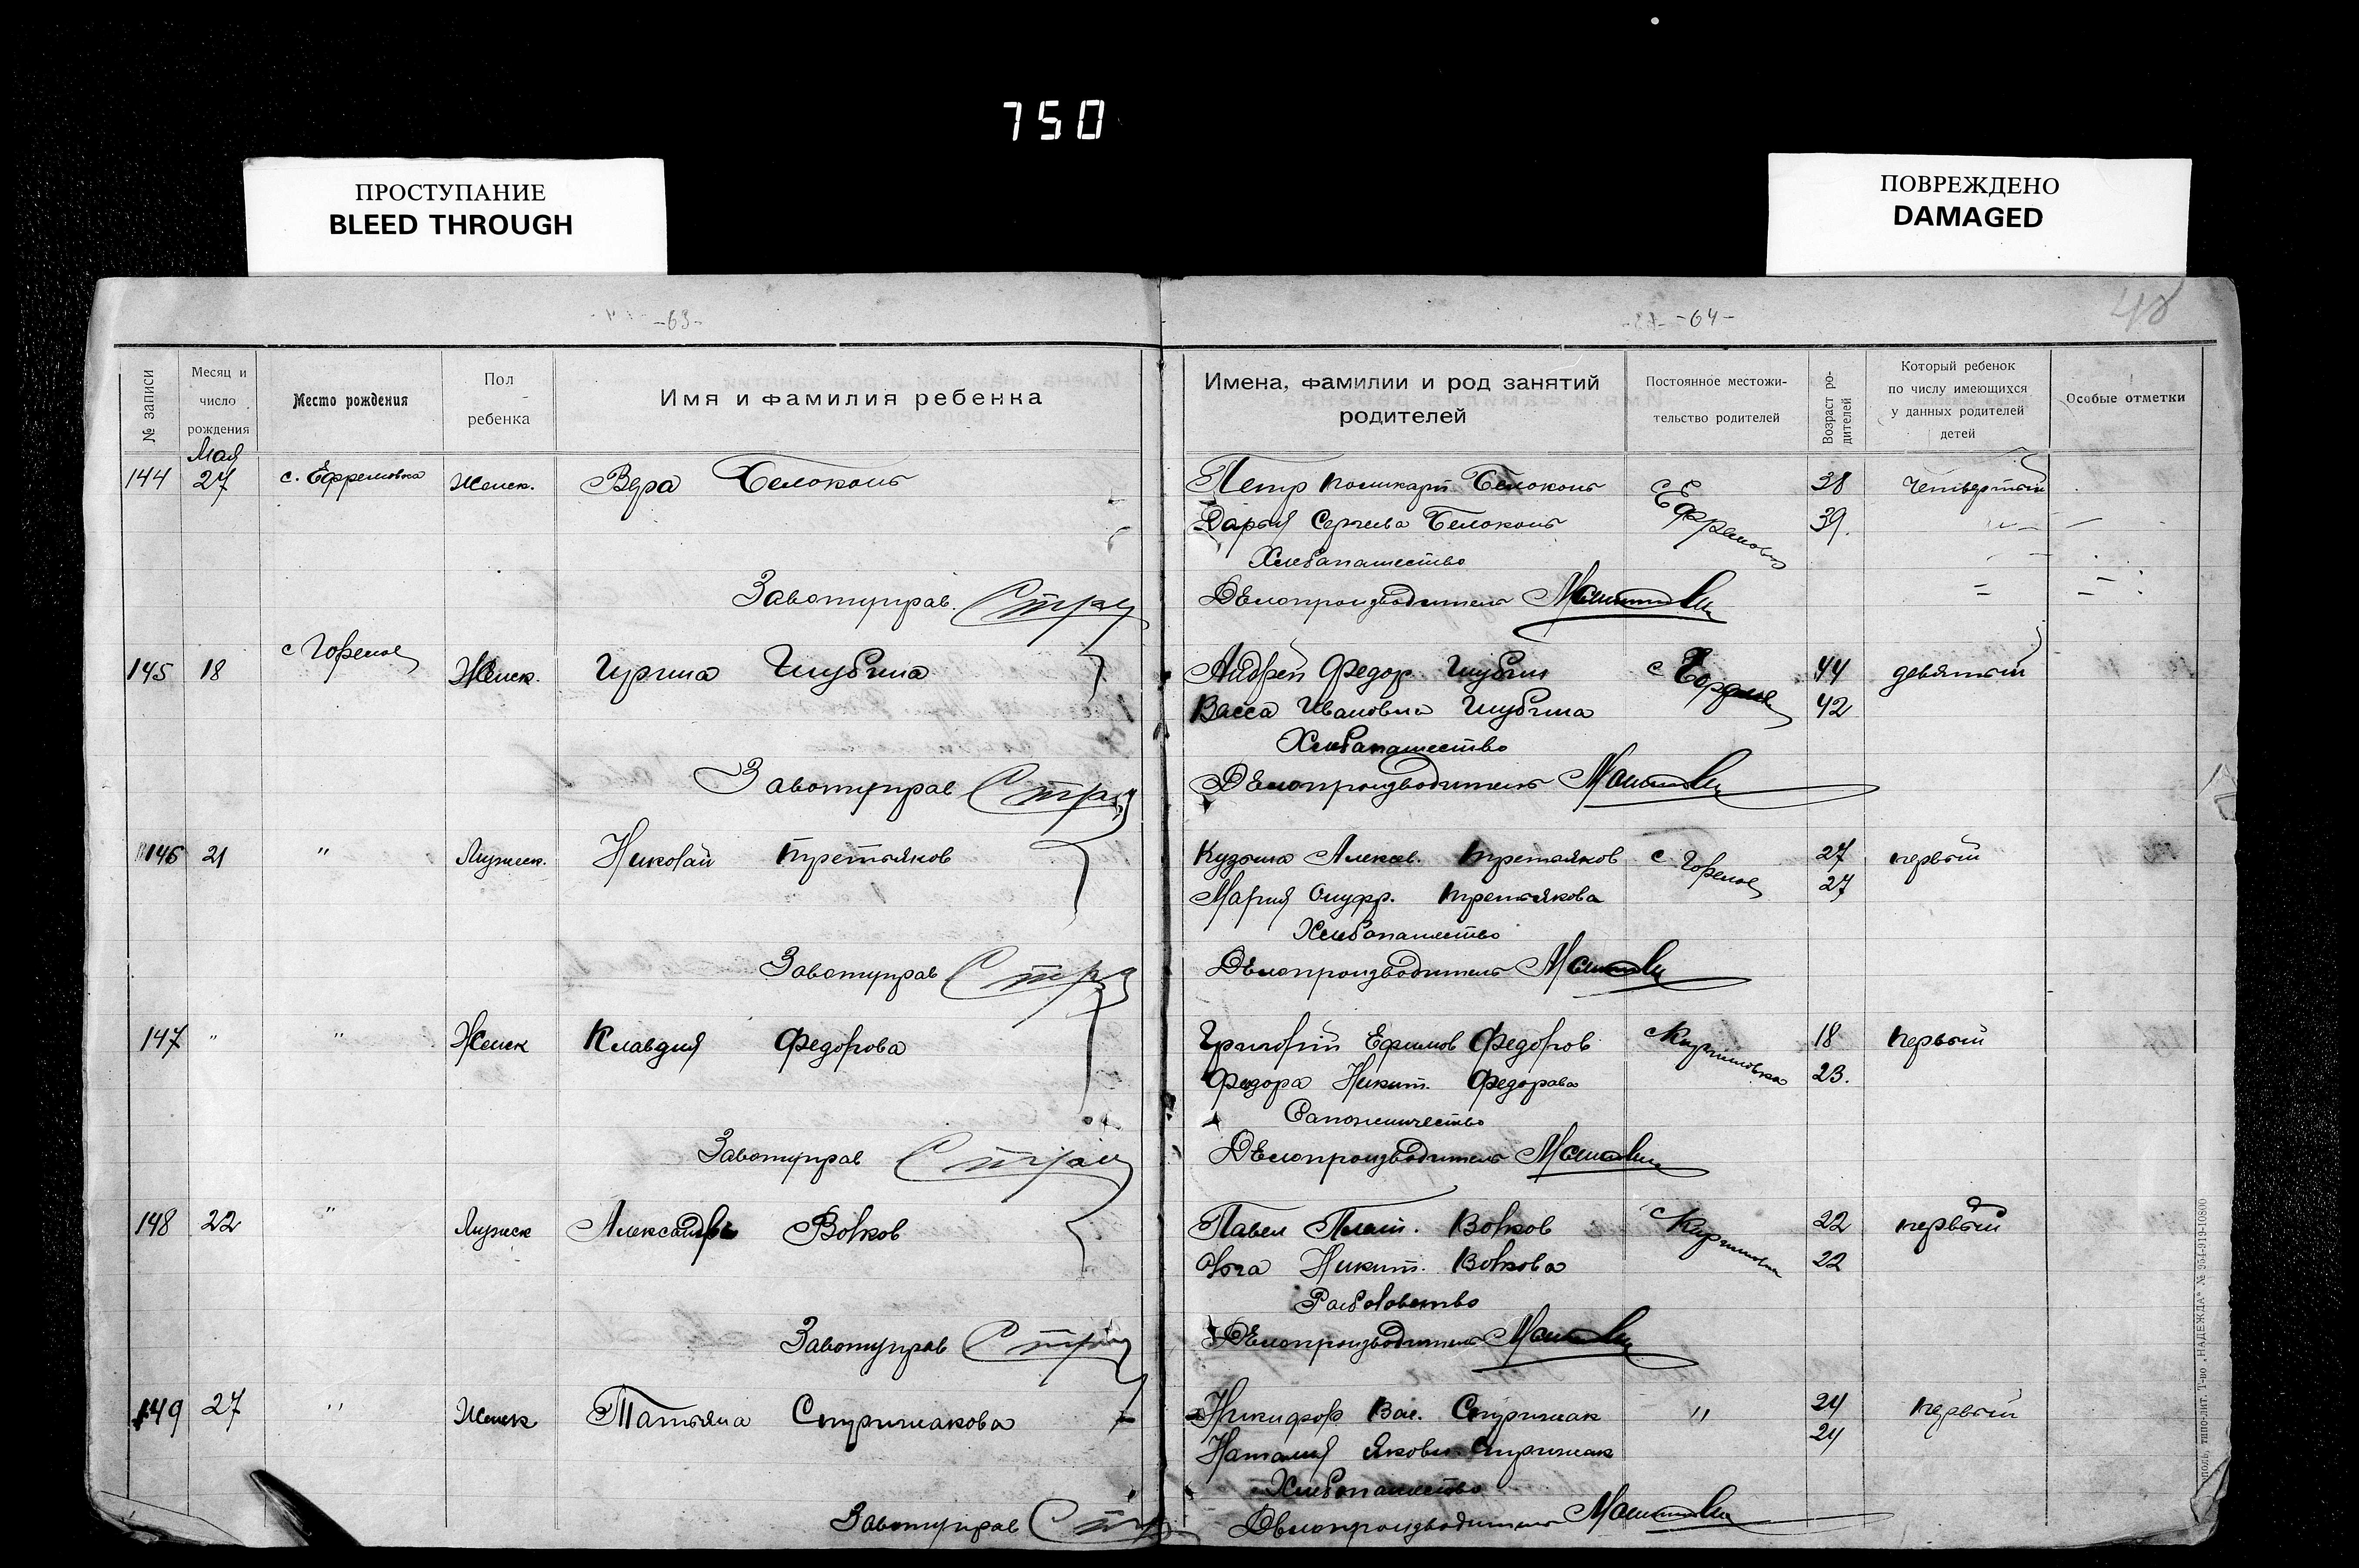 750
ПРОСТУПАНИЕ
BLEED THROUGH
ПОВРЕЖДЕНО
DAMAGED
-63-
-64-
№ записи
Месяц и число рождения
Место рождения
Пол ребенка
Имя и фамилия ребенка
Имена, фамилии и род занятий родителей
Постоянное местожи-тельство родителей
Возраст ро-дителей
Который ребенок по числу имеющихся у данных родителей детей
Особые отметки
Мая
144 27 с. Ефремовка Женск. Вера Белоконь Петр Поликарп Белоконь Ефремовка 38 четвертый
Дарья Сергеева Белоконь 39.
Хлебопашество
Завотуправ. Делопроизводитель
145 18 с Горелое Женск. Ирина Шубина Андрей Федор. Шубин с Горелое 44 девятый
Васса Ивановна Шубина 42
Хлебопашество
Завотуправ Делопроизводитель
146 21 " Мужеск. Николай Третьяков Кузьма Алексе. Третьяков с Горелое 27 первый
Мария Онуфр. Третьякова 27
Хлебопашество
Завотуправ Делопроизводитель
147 " " Женск Клавдия Федорова Григорий Ефимов Федоров 18 первый
Федора Никит. Федорова 23.
Сапожничество
Завотуправ Делопроизводитель
148 22 " Мужск Александр Волков Павел Волков 22 первый
Ольга Никит. Волкова 22
Рыболовство
Завотуправ Делопроизводитель
149 27 " Женск Татьяна Стрижакова Никифор Вас. Стрижак " 24 первый
Наталия Яковл. Стрижак 24
Хлебопашество
Завотуправ Делопроизводитель
типо-лит. Т-во „НАДЕЖДА" № 954-919-10800